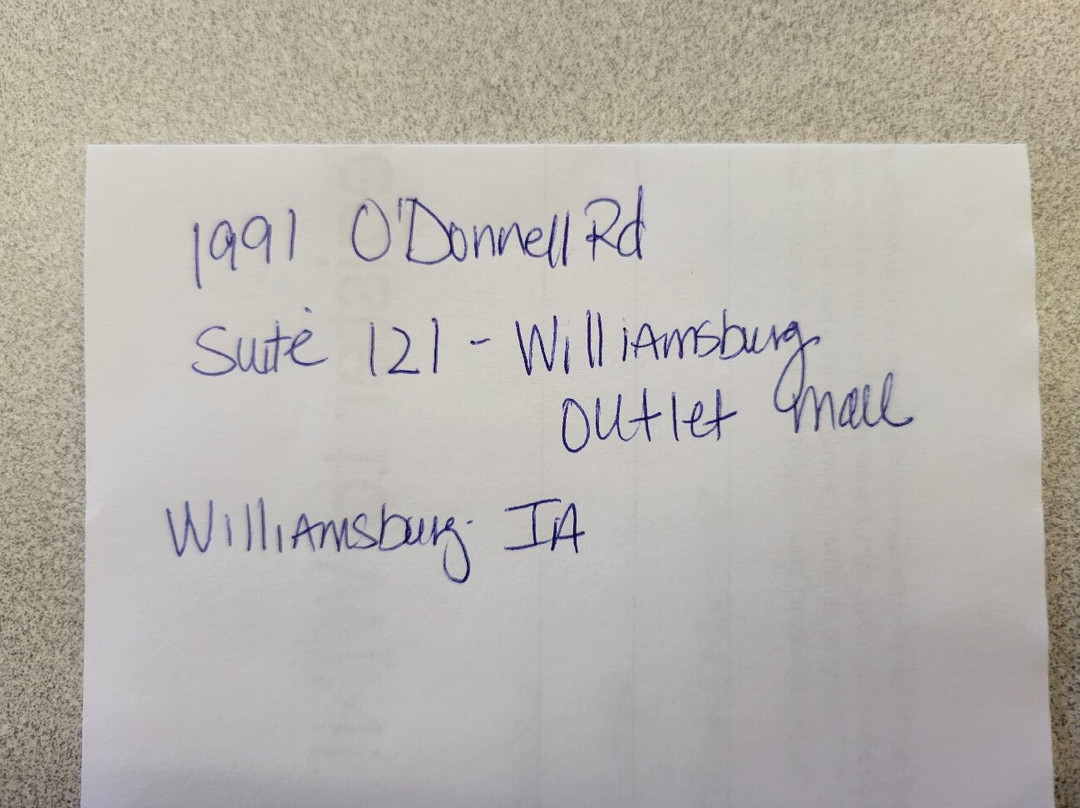 1991 O'Donnell Rd
Suite 121 - Williamsburg
Outlet Mall
Williamsburg IA